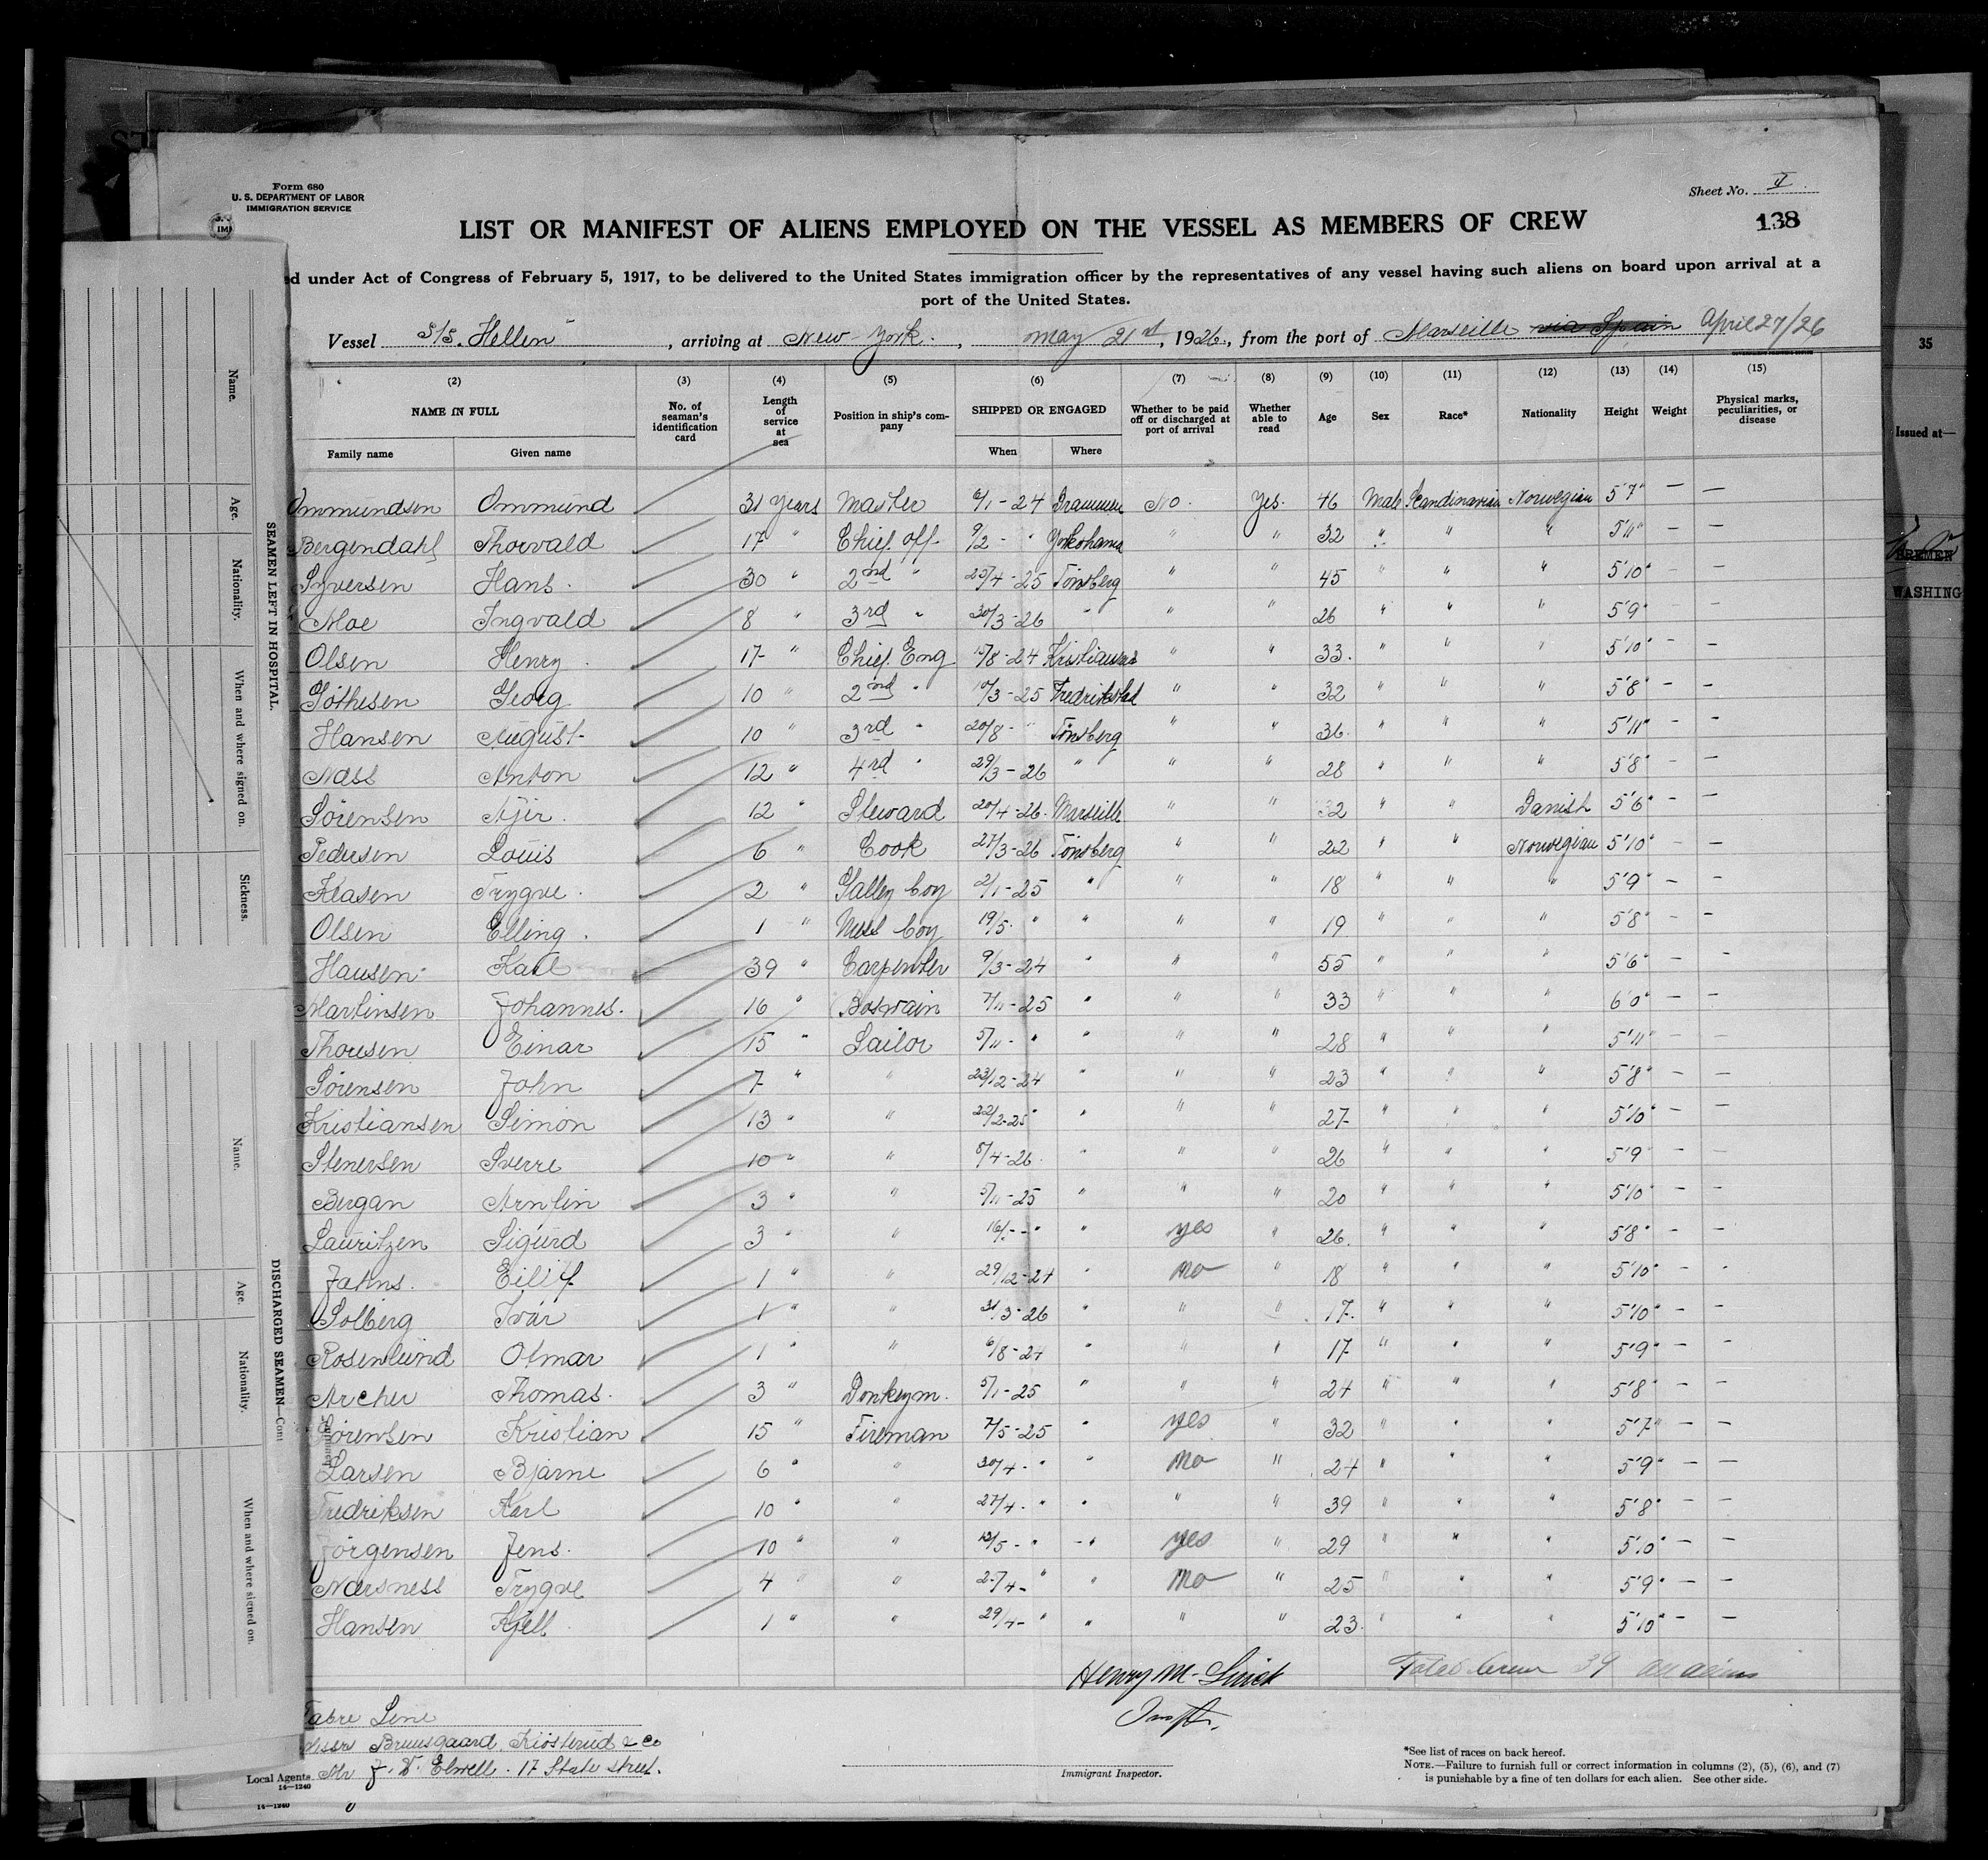 Form 680
U. S. DEPARTMENT OF LABOR
IMMIGRATION SERVICE
Sheet No. I
138
LIST OR MANIFEST OF ALIENS EMPLOYED ON THE VESSEL AS MEMBERS OF CREW
ed under Act of Congress of February 5, 1917, to be delivered to the United States immigration officer by the representatives of any vessel having such aliens on board upon arrival at a
port of the United States.
Vessel S/S. Hellen, arriving at New York, May 21st, 1926, from the port of Marseille via Spain April 27/26
(2) (3) (4) (5) (6) (7) (8) (9) (10) (11) (12) (13) (14) (15)
NAME IN FULL No. of seaman's identification card Length of service at sea Position in ship's company SHIPPED OR ENGAGED Whether to be paid off or discharged at port of arrival Whether able to read Age Sex Race* Nationality Height Weight Physical marks, peculiarities, or disease
Family name Given name When Where
Ommundsen Ommund 31 years Master 6/1-24 Drammen No. Yes. 46 Male Scandinavian Norwegian 5'7" — —
Bergendahl Thorvald 17 " Chief off. 9/2 - " Yokohama " " 32 " " " 5'11" — —
Syversen Hans. 30 " 2nd " 25/4-25 Tönsberg " " 45 " " " 5'10" — —
Moe Ingvald 8 " 3rd " 30/3-26 " " " 26 " " " 5'9" — —
Olsen Henry. 17 " Chief. Eng 15/8-24 " " 33. " " " 5'10" — —
Göthesen Georg 10 " 2nd " 10/3-25 Fredrikstad " " 32 " " " 5'8" — —
Hansen August 10 " 3rd " 20/8- " Tönsberg " " 36. " " " 5'11" — —
Næss Anton 12 " 4rd " 29/3-26 " " " 28 " " " 5'8" — —
Sörensen 12 " Steward 20/4-26. Marseille " " 32 " " Danish 5'6" — —
Pedersen Louis 6 " Cook 27/3-26 Tönsberg " " 22 " " Norwegian 5'10" — —
Klasen Trygve. 2 " Galley boy 2/1-25 " " " 18 " " " 5'9" — —
Olsen Elling. 1 " Mess boy 19/5. " " " " 19 " " " 5'8" — —
Hansen Karl 39 " Carpenter 9/3-24 " " " 55 " " " 5'6" — —
Martinsen Johannes. 16 " Boswain 7/11-25 " " " 33 " " " 6'0" — —
Thoresen Einar 15 " Sailor 5/11- " " " " 28 " " " 5'11" — —
Sörensen John 7 " " 23/12-24 " " " 23 " " " 5'8" — —
Kristiansen Simon 13 " " 22/2-25 " " " 27 " " " 5'10" — —
Stenersen Sverre 10 " " 8/4-26. " " " 26 " " " 5'9" — —
Bergan Arntin 3 " " 5/11-25 " " " 20 " " " 5'10" — —
Lauritzen Sigurd 3 " " " yes " 26. " " " 5'8" — —
Jahns. Eilif 1 " " 29/12-24 " no " 18 " " " 5'10" — —
Solberg Ivar 1 " " 31/3-26 " " " 17. " " " 5'10" — —
Rosenlund Otmar 1 " " 6/8-24 " " " 17 " " " 5'9" — —
Archer Thomas. 3 " Donkeym. 5/1-25 " " " 24 " " " 5'8" — —
Sörensen Kristian 15 " Fireman 7/5-25 " yes " 32 " " " 5'7" — —
Larsen Bjarne 6 " " 30/4. " " no " 24 " " " 5'9" — —
Fredriksen Karl 10 " " 27/4. " " " " 39 " " " 5'8" — —
Jörgensen Jens. 10 " " 12/5- " " yes " 29 " " " 5'10" — —
Nærsness Trygve 4 " " 27/4- " " no " 25 " " " 5'9" — —
Hansen Kjell 1 " " 29/4- " " " " 23. " " " 5'10" — —
Henry M. Total Crew 39 all aliens
Insptr.
Fabre Line
Bruusgaard, Kiösterud & Co
Local Agents Mr J. W. Elwell. 17 State street.
14—1240
Immigrant Inspector.
*See list of races on back hereof.
NOTE.—Failure to furnish full or correct information in columns (2), (5), (6), and (7)
is punishable by a fine of ten dollars for each alien. See other side.
14—1240
SEAMEN LEFT IN HOSPITAL.
Name.
Age.
Nationality.
When and where signed on.
Sickness.
DISCHARGED SEAMEN—Cont
Name.
Age.
Nationality.
When and where signed on.
35
Issued at—
BREMEN
WASHING